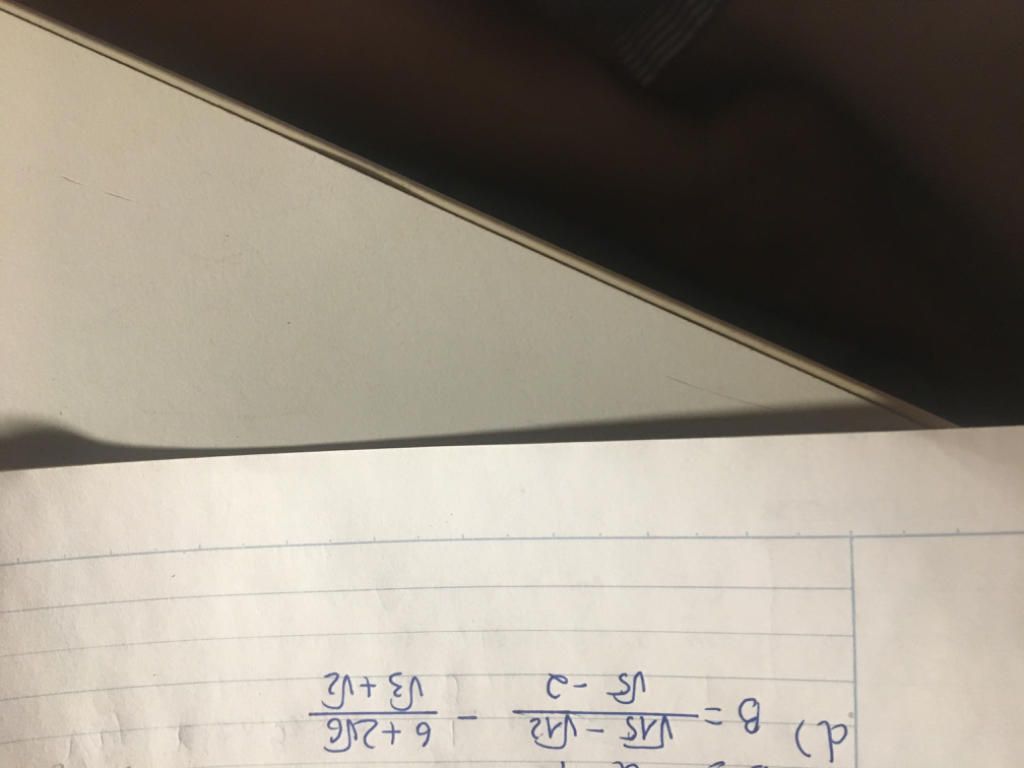 d) B = (√15 - √12)/(√5 - 2) - (6 + 2√6)/(√3 + √2)